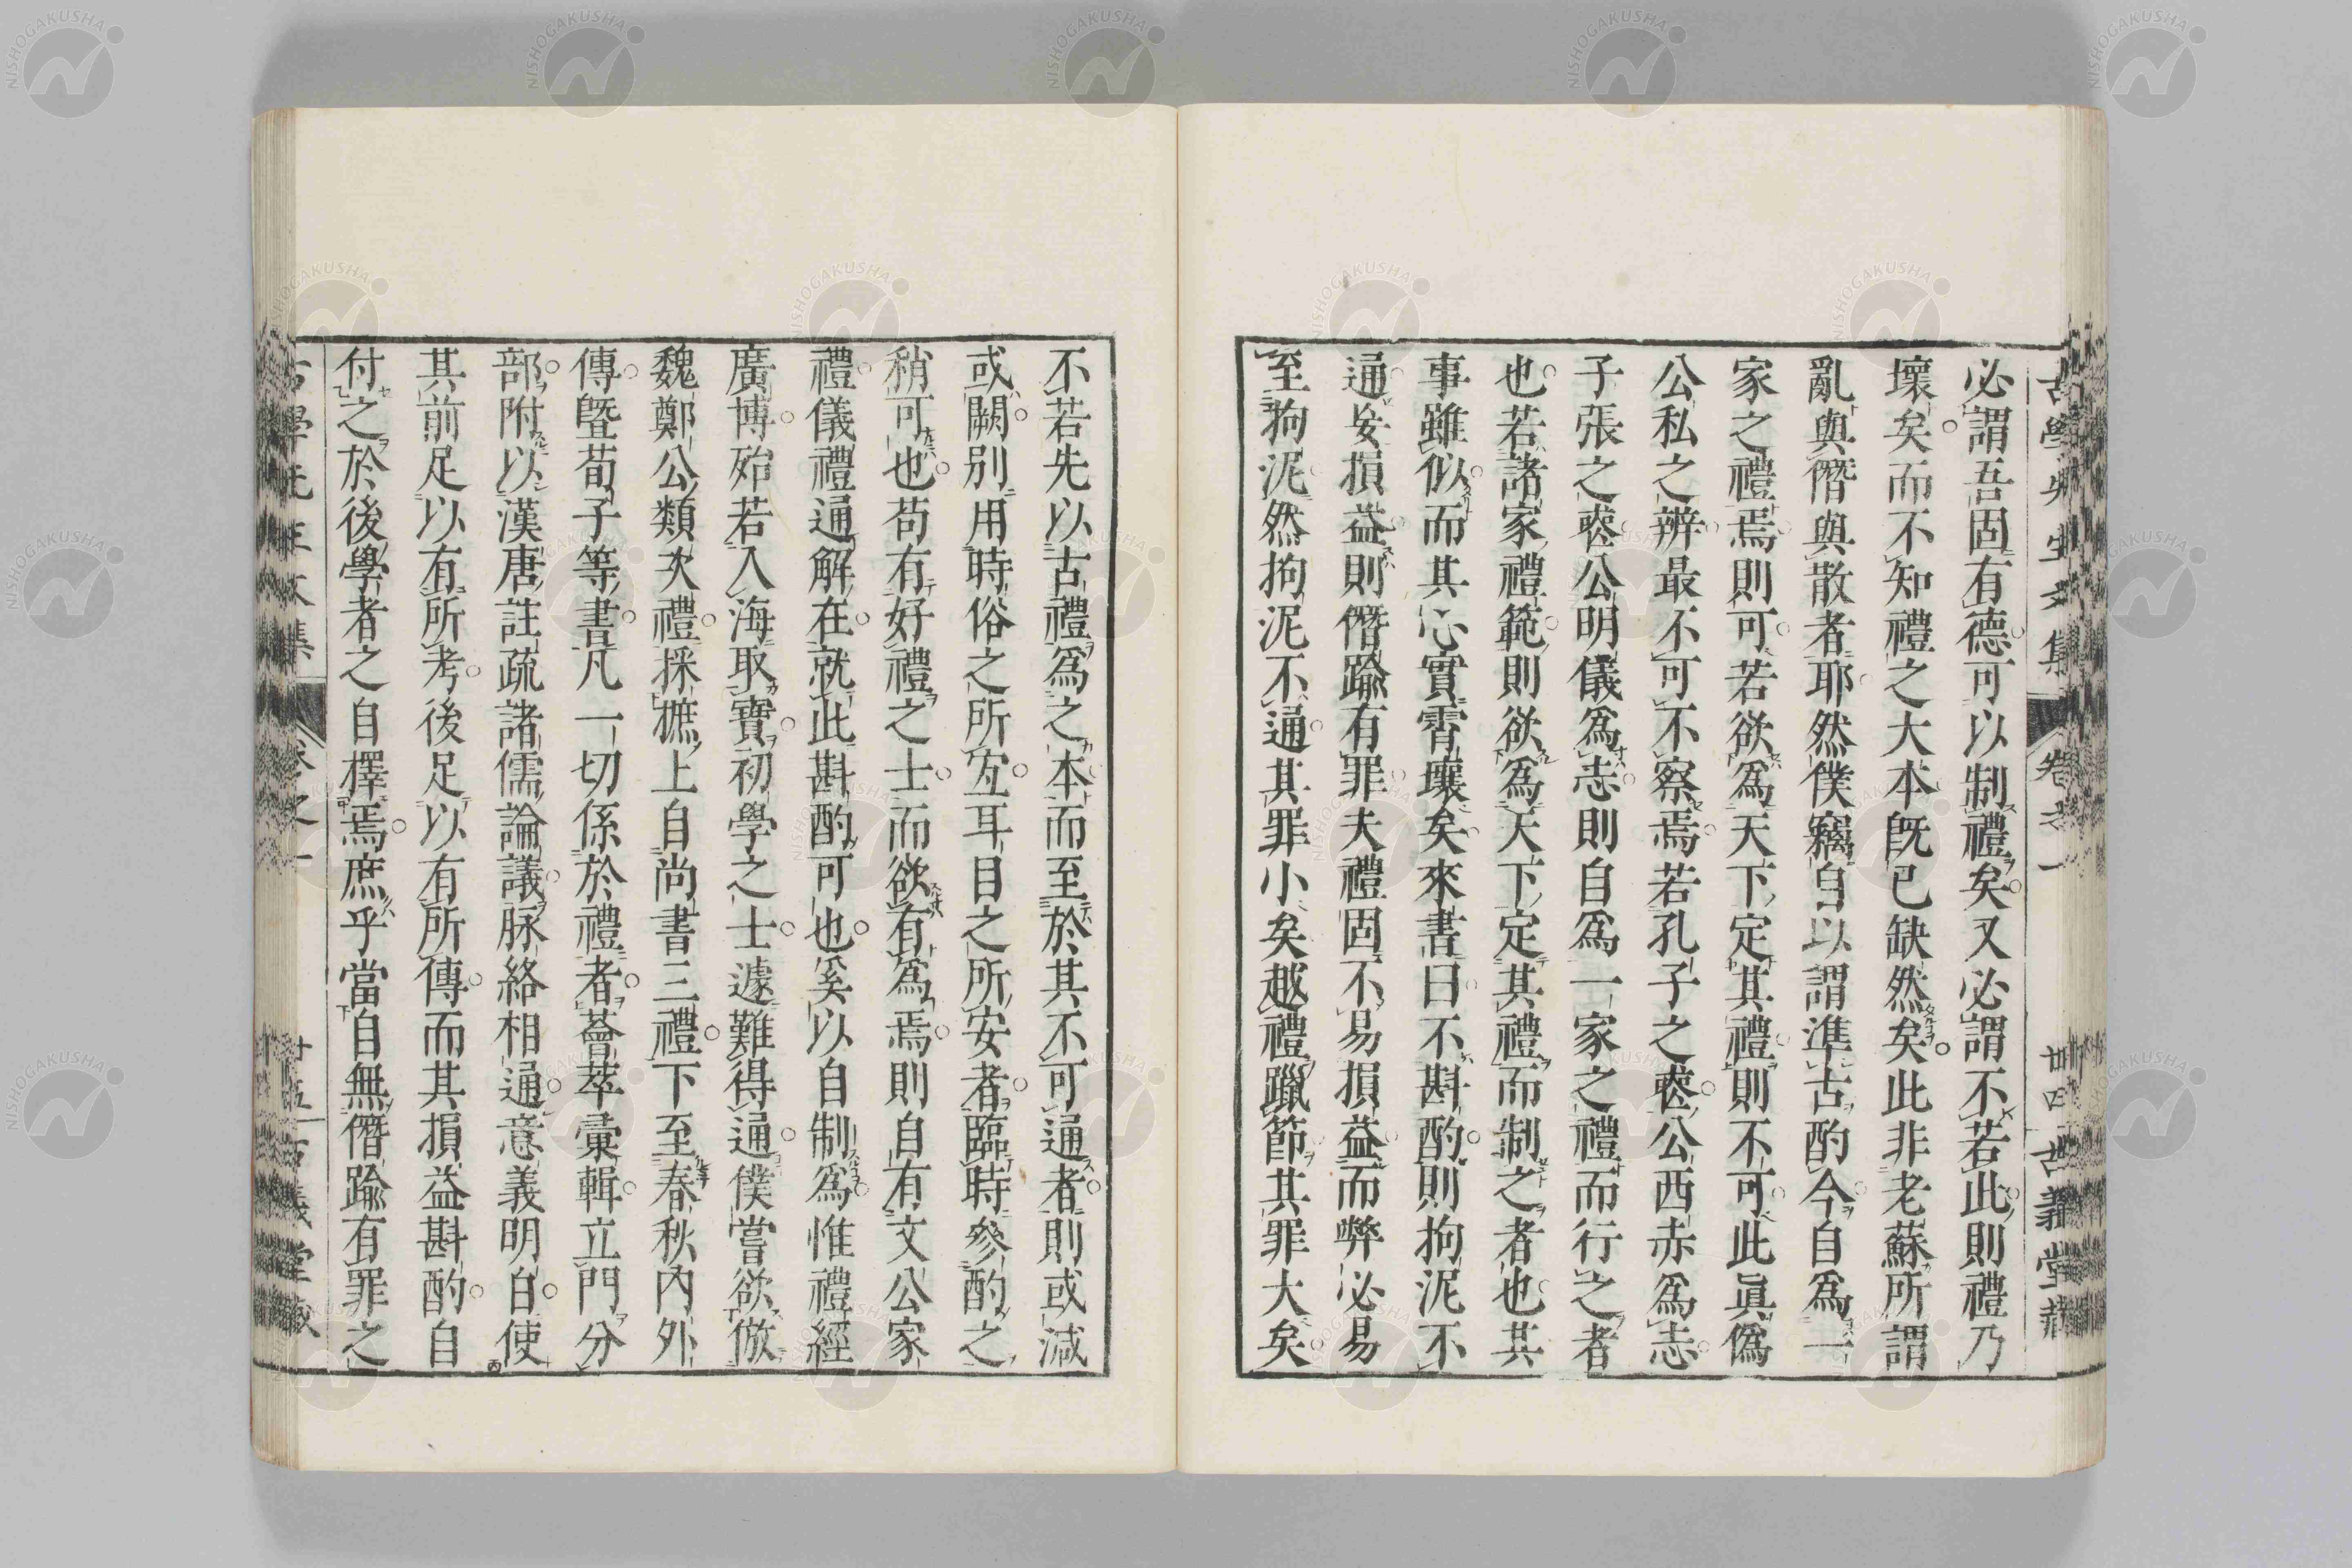 古學先生文集 卷之一 廿四 古義堂藏
必謂吾固有德可以制禮矣又必謂不若此則禮乃
壞矣而不知禮之大本既已缺然矣此非老蘇所謂
亂與僭與散者耶然僕竊自以謂準古酌今自爲一
家之禮焉則可若欲爲天下定其禮則不可此眞僞
公私之辨最不可不察焉若孔子之喪公西赤爲志
子張之喪公明儀爲志則自爲一家之禮而行之者
也若諸家禮範則欲爲天下定其禮而制之者也其
事雖似而其心實霄壤矣來書曰不斟酌則拘泥不
通妄損益則僭踰有罪夫禮固不易損益而弊必易
至拘泥然拘泥不通其罪小矣越禮躐節其罪大矣
不若先以古禮爲之本而至於其不可通者則或減
或闕別用時俗之所宐耳目之所安者臨時參酌之
稍可也苟有好禮之士而欲有爲焉則自有文公家
禮儀禮通解在就此斟酌可也奚以自制爲惟禮經
廣博殆若入海取寶初學之士遽難得通僕嘗欲倣
魏鄭公類次禮採摭上自尚書三禮下至春秋內外
傳曁荀子等書凡一切係於禮者薈萃彙輯立門分
部附以漢唐註疏諸儒論議脉絡相通意義明白使
其前足以有所考後足以有所傳而其損益斟酌自
付之於後學者之自擇焉庶乎當自無僭踰有罪之
古學先生文集 卷之一 廿五 古義堂藏